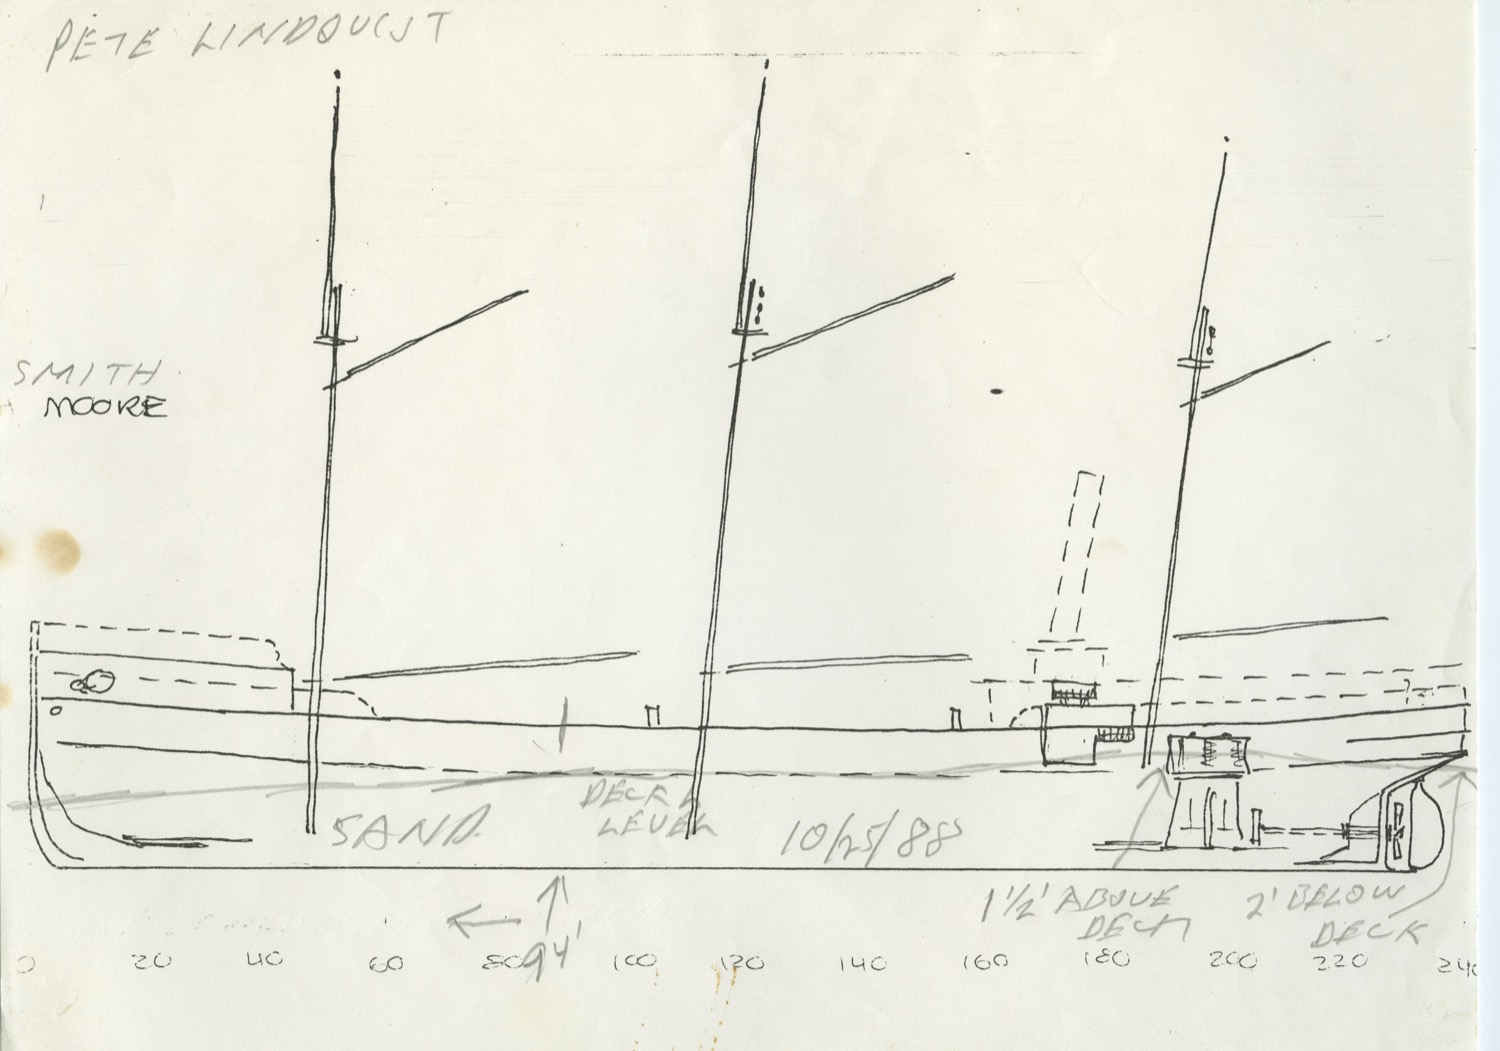 PETE LINDQUIST
SMITH
MOORE
SAND
DECK
LEVEL
10/25/88
1 1/2' ABOVE
DECK
2' BELOW
DECK
94'
0 20 40 60 80 100 120 140 160 180 200 220 240